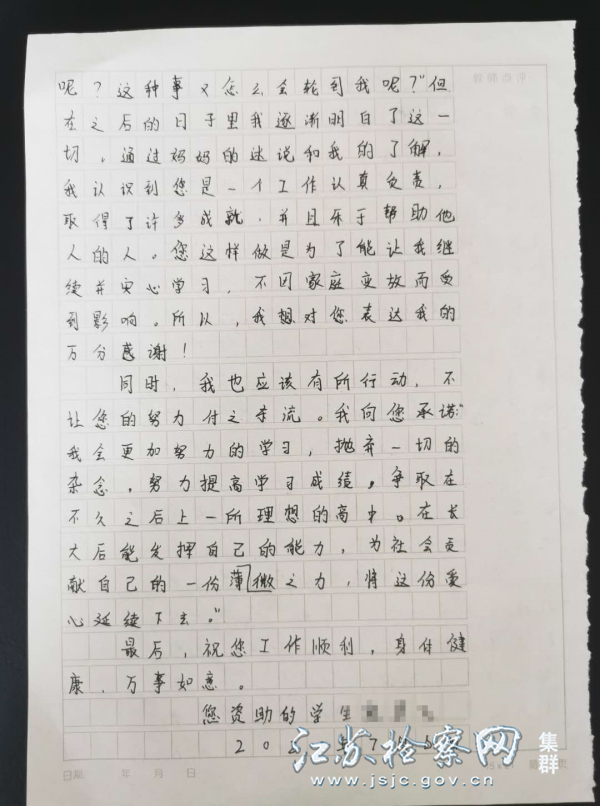 呢？这种事又怎么会轮到我呢？"但
在之后的日子里我逐渐明白了这一
切。通过妈妈的述说和我的了解，
我认识到您是一个工作认真负责，
取得了许多成就，并且乐于帮助他
人的人。您这样做是为了能让我继
续并安心学习，不因家庭变故而受
到影响。所以，我想对您表达我的
万分感谢！
同时，我也应该有所行动，不
让您的努力付之东流。我向您承诺："
我会更加努力的学习，抛弃一切的
杂念，努力提高学习成绩，争取在
不久之后上一所理想的高中。在长
大后能发挥自己的能力，为社会贡
献自己的一份薄微之力，将这份爱
心延续下去。"
最后，祝您工作顺利，身体健
康，万事如意。
您资助的学生
20
江苏检察网 集群
www.jsjc.gov.cn
日期 年 月 日